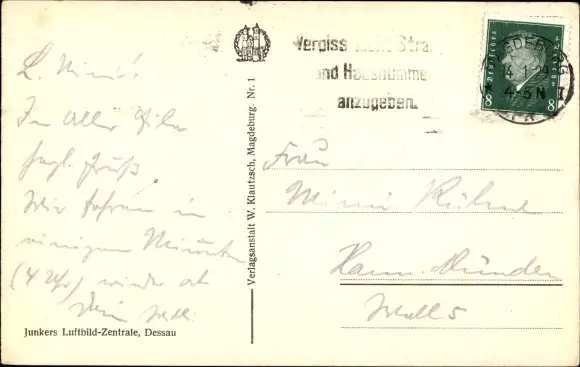 L. Mimi!
In aller Eile
herzl. Gruß
Wir fahren in
einigen Minuten
(4 Uhr) wieder ab
Dein
Junkers Luftbild-Zentrale, Dessau
Verlagsanstalt W. Klautzsch, Magdeburg. Nr. 1
Vergiss nicht Stra
und Hausnumme
anzugeben.
MAGDEBURG
14.1.29
4-5N
8 8
Frau
Mimi
Hann. Münden